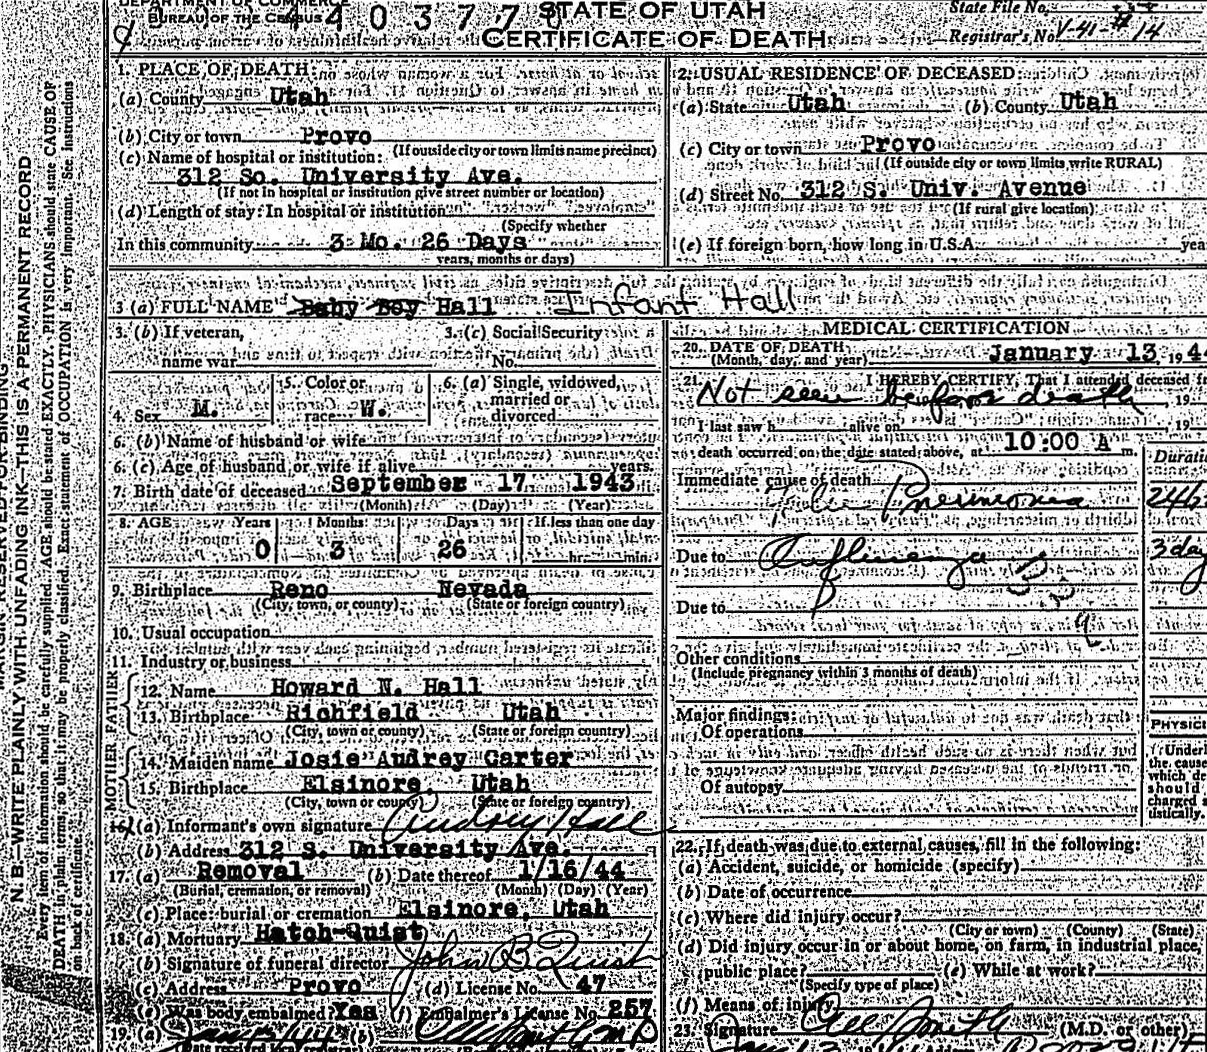 DEPARTMENT OF COMMERCE
BUREAU OF THE CENSUS
STATE OF UTAH
CERTIFICATE OF DEATH
State File No.
Registrar's No. V-41-# 14
MARGIN RESERVED FOR BINDING
N. B.—WRITE PLAINLY WITH UNFADING INK—THIS IS A PERMANENT RECORD
Every item of information should be carefully supplied. AGE should be stated EXACTLY. PHYSICIANS should state CAUSE OF
DEATH in plain terms, so that it may be properly classified. Exact statement of OCCUPATION is very important. See instructions
on back of certificate.
1. PLACE OF DEATH:
(a) County Utah
(b) City or town Provo
(If outside city or town limits name precinct)
(c) Name of hospital or institution:
312 So. University Ave.
(If not in hospital or institution give street number or location)
(d) Length of stay: In hospital or institution
(Specify whether
In this community 3 Mo. 26 Days
years, months or days)
2. USUAL RESIDENCE OF DECEASED:
(a) State Utah (b) County Utah
(c) City or town Provo
(If outside city or town limits, write RURAL)
(d) Street No. 312 S. Univ. Avenue
(If rural give location)
(e) If foreign born, how long in U.S.A.
3 (a) FULL NAME Baby Boy Hall Infant Hall
3. (b) If veteran,
name war
3. (c) Social Security
No.
4. Sex M.
5. Color or
race W.
6. (a) Single, widowed,
married or
divorced
6. (b) Name of husband or wife
6. (c) Age of husband or wife if alive years.
7. Birth date of deceased September 17 1943
(Month) (Day) (Year)
8. AGE Years Months Days If less than one day
0 3 26 hr. min.
9. Birthplace Reno Nevada
(City, town, or county) (State or foreign country)
10. Usual occupation
11. Industry or business
FATHER
12. Name Howard N. Hall
13. Birthplace Richfield Utah
(City, town, or county) (State or foreign country)
MOTHER
14. Maiden name Josie Audrey Carter
15. Birthplace Elsinore, Utah
(City, town or county) (State or foreign country)
16. (a) Informant's own signature Audrey Hall
(b) Address 312 S. University Ave.
17. (a) Removal (b) Date thereof 1/16/44
(Burial, cremation, or removal) (Month) (Day) (Year)
(c) Place: burial or cremation Elsinore, Utah
18. (a) Mortuary Hatch-Quist
(b) Signature of funeral director John B Quist
(c) Address Provo (d) License No. 47
(e) Was body embalmed? Yes (f) Embalmer's License No. 257
19. (a) (b)
(Date received local registrar)
MEDICAL CERTIFICATION
20. DATE OF DEATH: January 13, 194
(Month, day, and year)
21. I HEREBY CERTIFY, That I attended deceased
Not seen before death, 19
I last saw h alive on , 19
death occurred on the date stated above, at 10:00 A m.
Immediate cause of death
Pneumonia
Due to Influenza 3 day
Due to
Other conditions
(Include pregnancy within 3 months of death)
Major findings:
Of operations
Of autopsy
22. If death was due to external causes, fill in the following:
(a) Accident, suicide, or homicide (specify)
(b) Date of occurrence
(c) Where did injury occur?
(City or town) (County) (State)
(d) Did injury occur in or about home, on farm, in industrial place,
public place? (e) While at work?
(Specify type of place)
(f) Means of injury
23. Signature (M.D. or other)